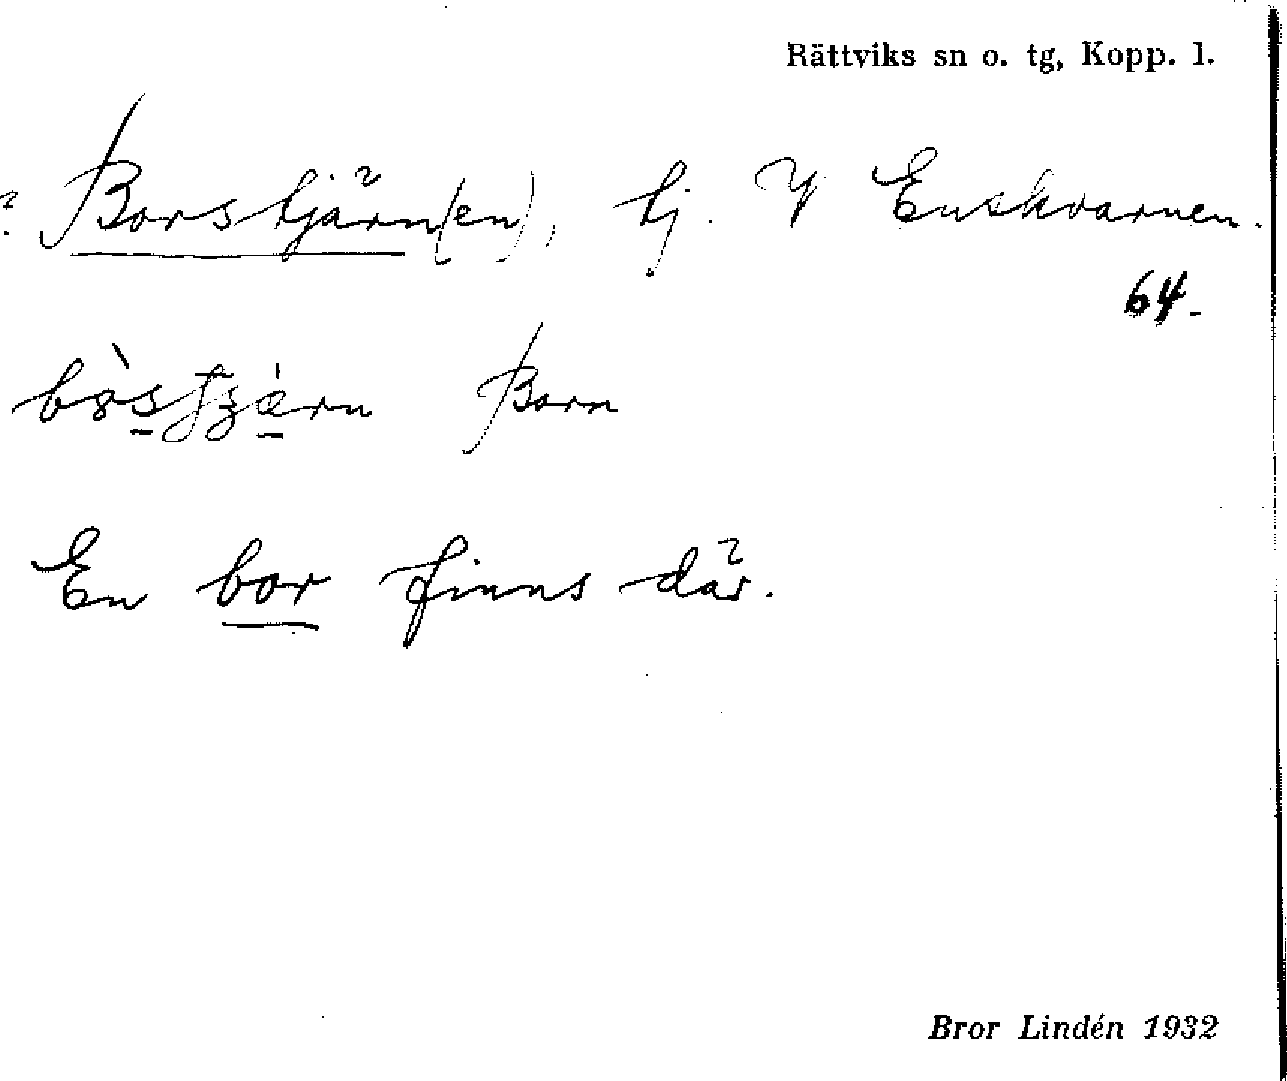 Rättviks sn o. tg, Kopp. l.
? Borstjärn(en), tj. V Enskvarnen.
64.
Born
En bor finns där.
Bror Lindén 1932